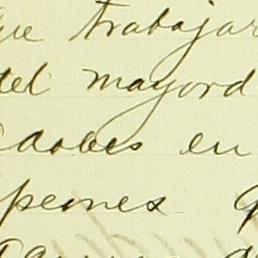 que trabajar
tel mayord
adobes en
peones